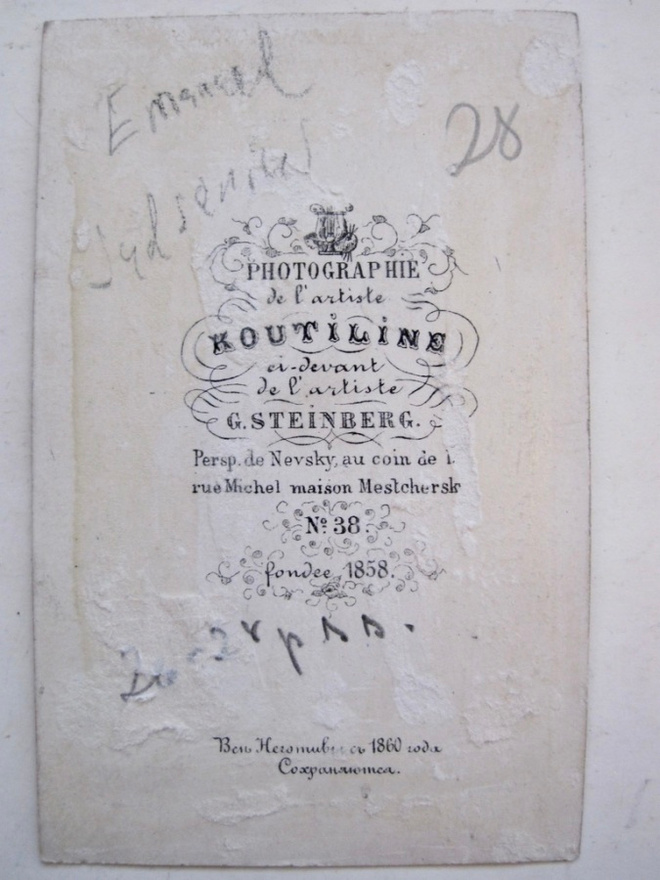 Emanuel
28
PHOTOGRAPHIE
de l'artiste
KOUTİLİNE
ci-devant
de l'artiste
G. STEİNBERG.
Persp. de Nevsky, au coin de l.
rue Michel maison Mestchersk
Nº 38.
fondée 1858.
Всѣ Негативы съ 1860 года
Сохраняются.